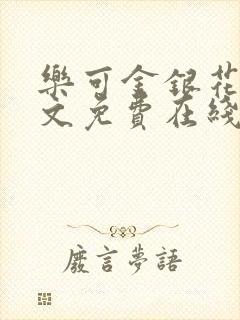 樂可金銀花
文免費在綫
廢言夢語